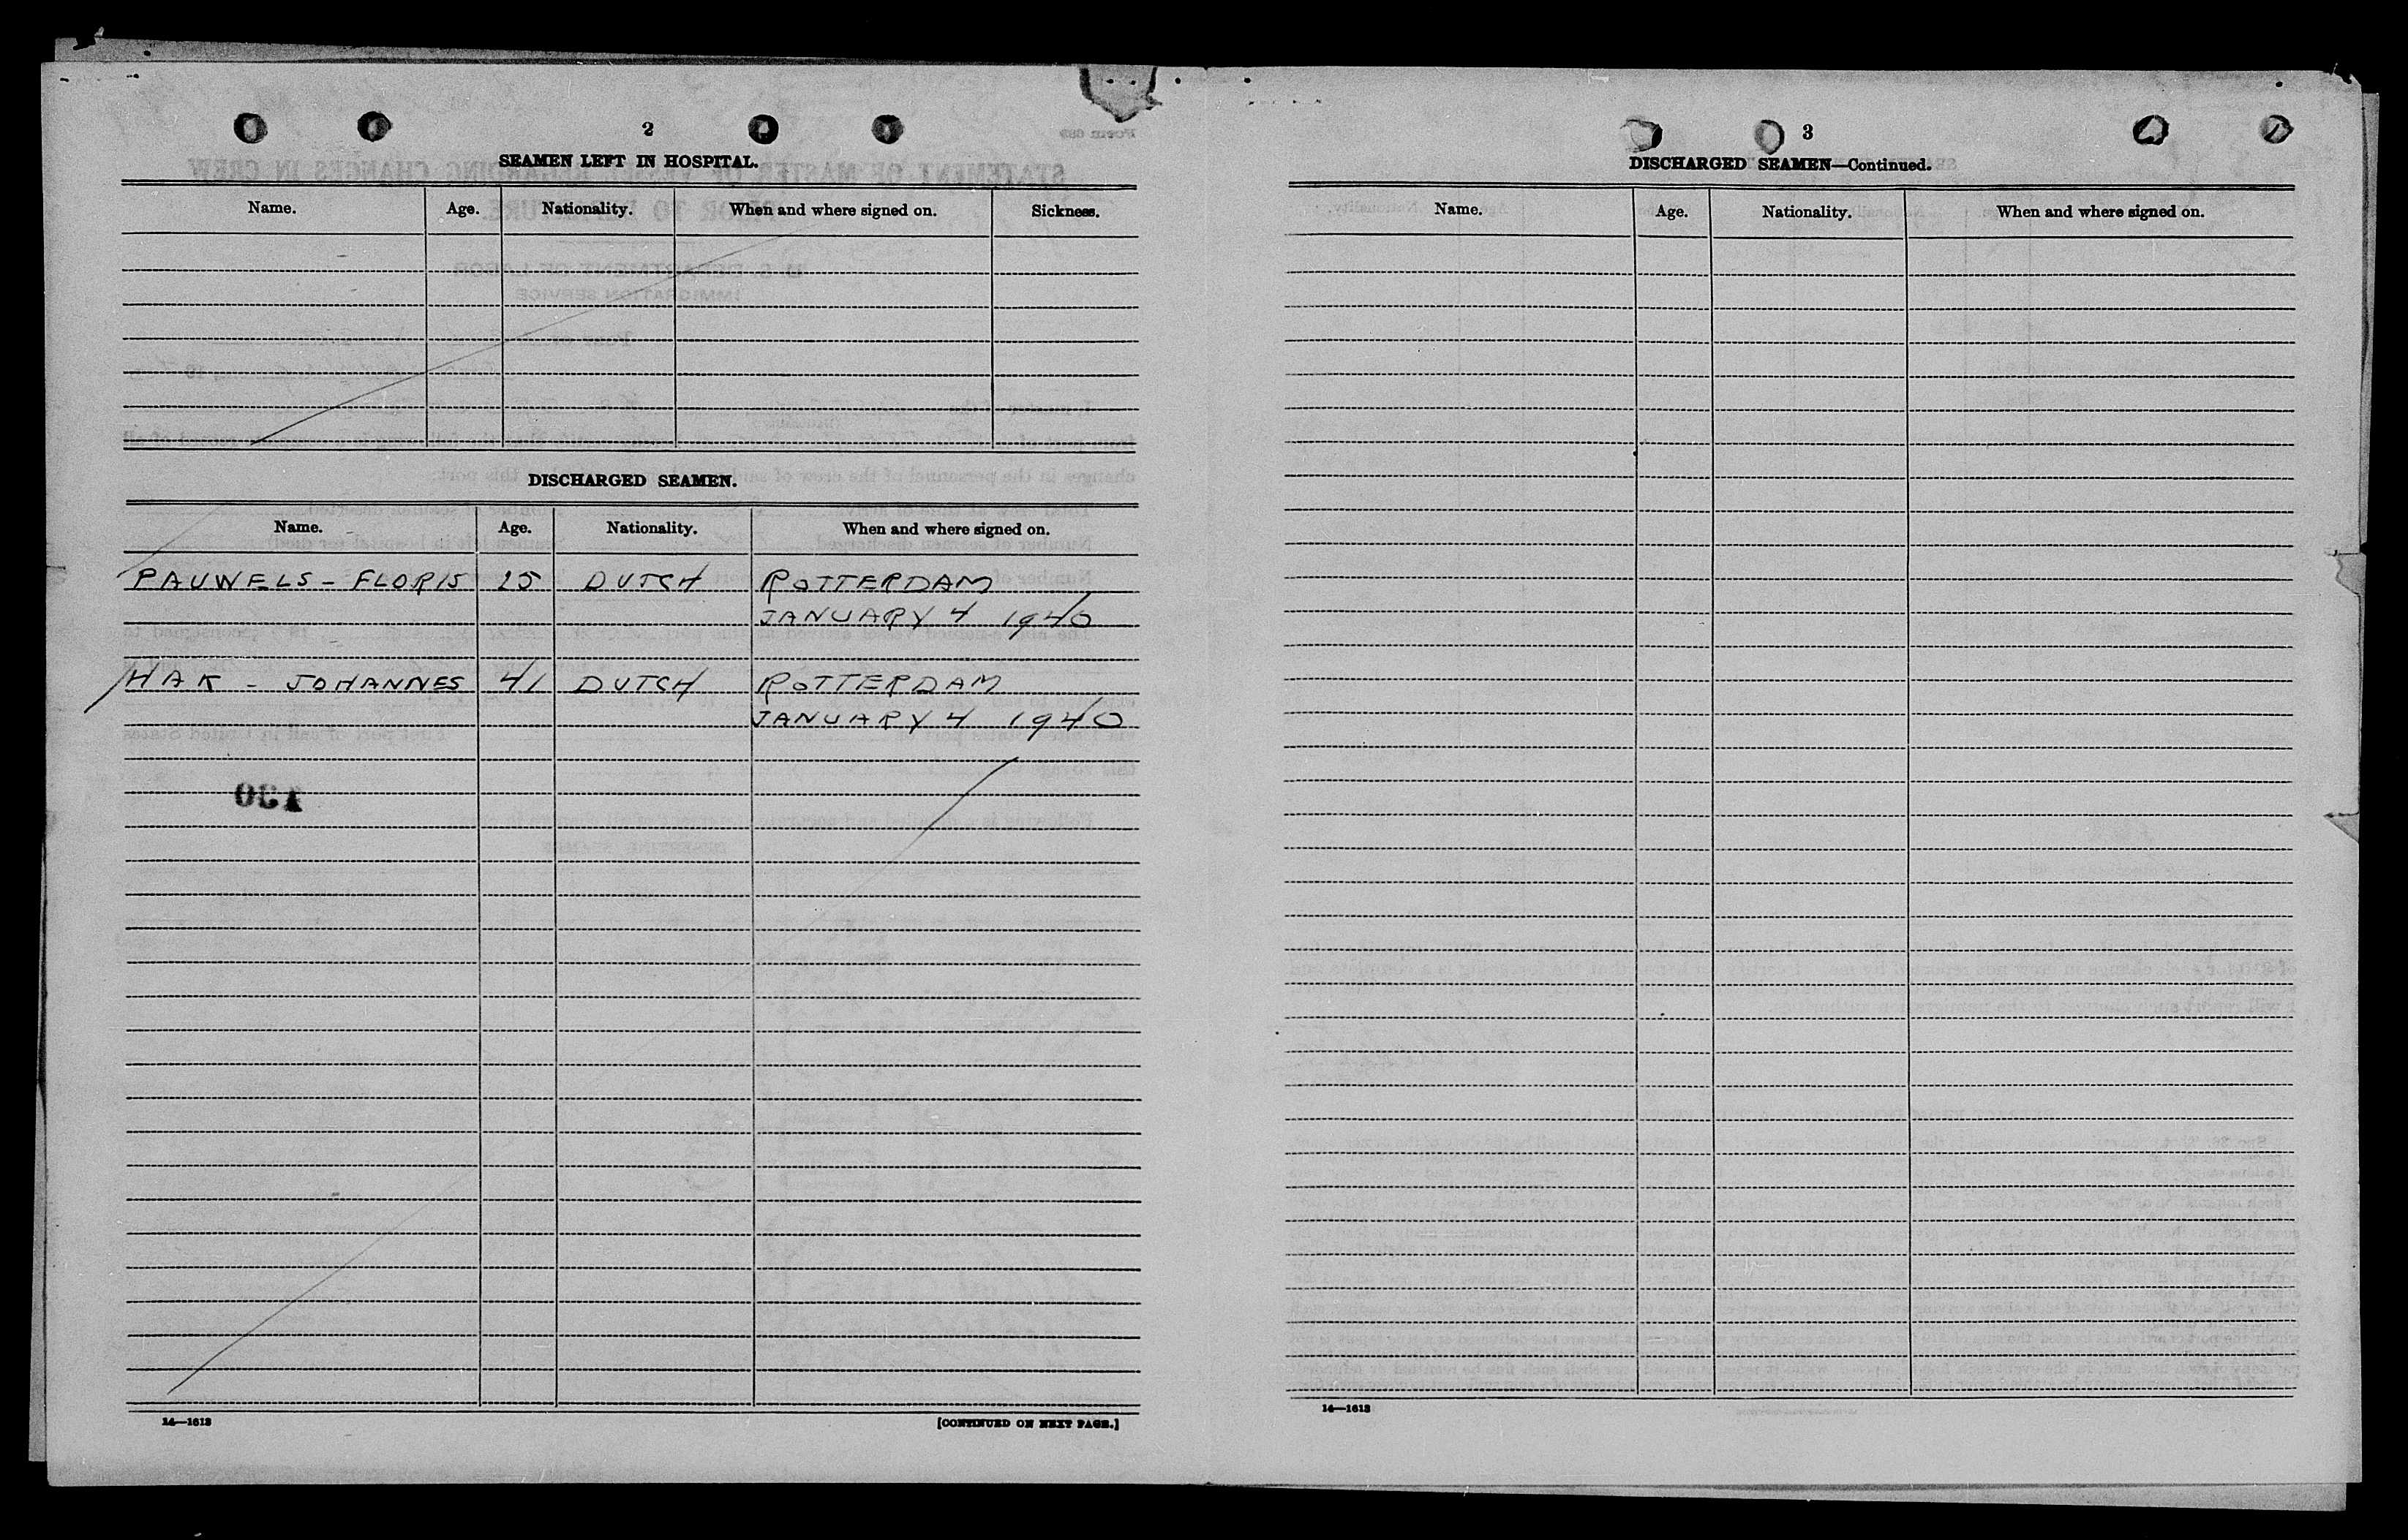 2
SEAMEN LEFT IN HOSPITAL.
Name. Age. Nationality. When and where signed on. Sickness.
DISCHARGED SEAMEN.
Name. Age. Nationality. When and where signed on.
PAUWELS - FLORIS 25 DUTCH ROTTERDAM
JANUARY 4 1940
HAK - JOHANNES 41 DUTCH ROTTERDAM
JANUARY 4 1940
14—1613
[CONTINUED ON NEXT PAGE.]
3
DISCHARGED SEAMEN—Continued.
Name. Age. Nationality. When and where signed on.
14—1613